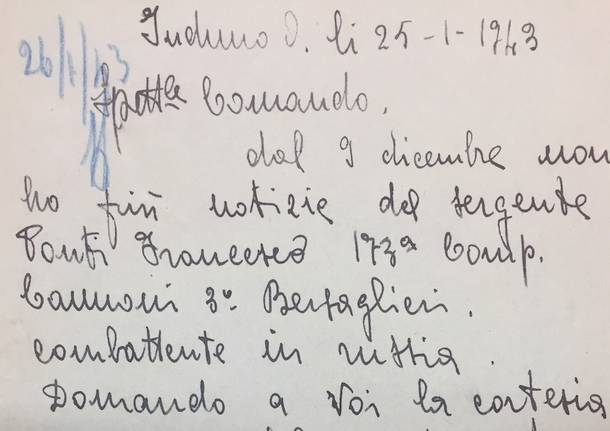 Induno O. li 25-1-1943
26/1/43
Spett.le Comando,
dal 9 dicembre non
ho più notizie del sergente
Ponti Francesco 173ª Comp.
Cannoni 3º Bersaglieri.
combattente in russia.
Domando a Voi la cortesia